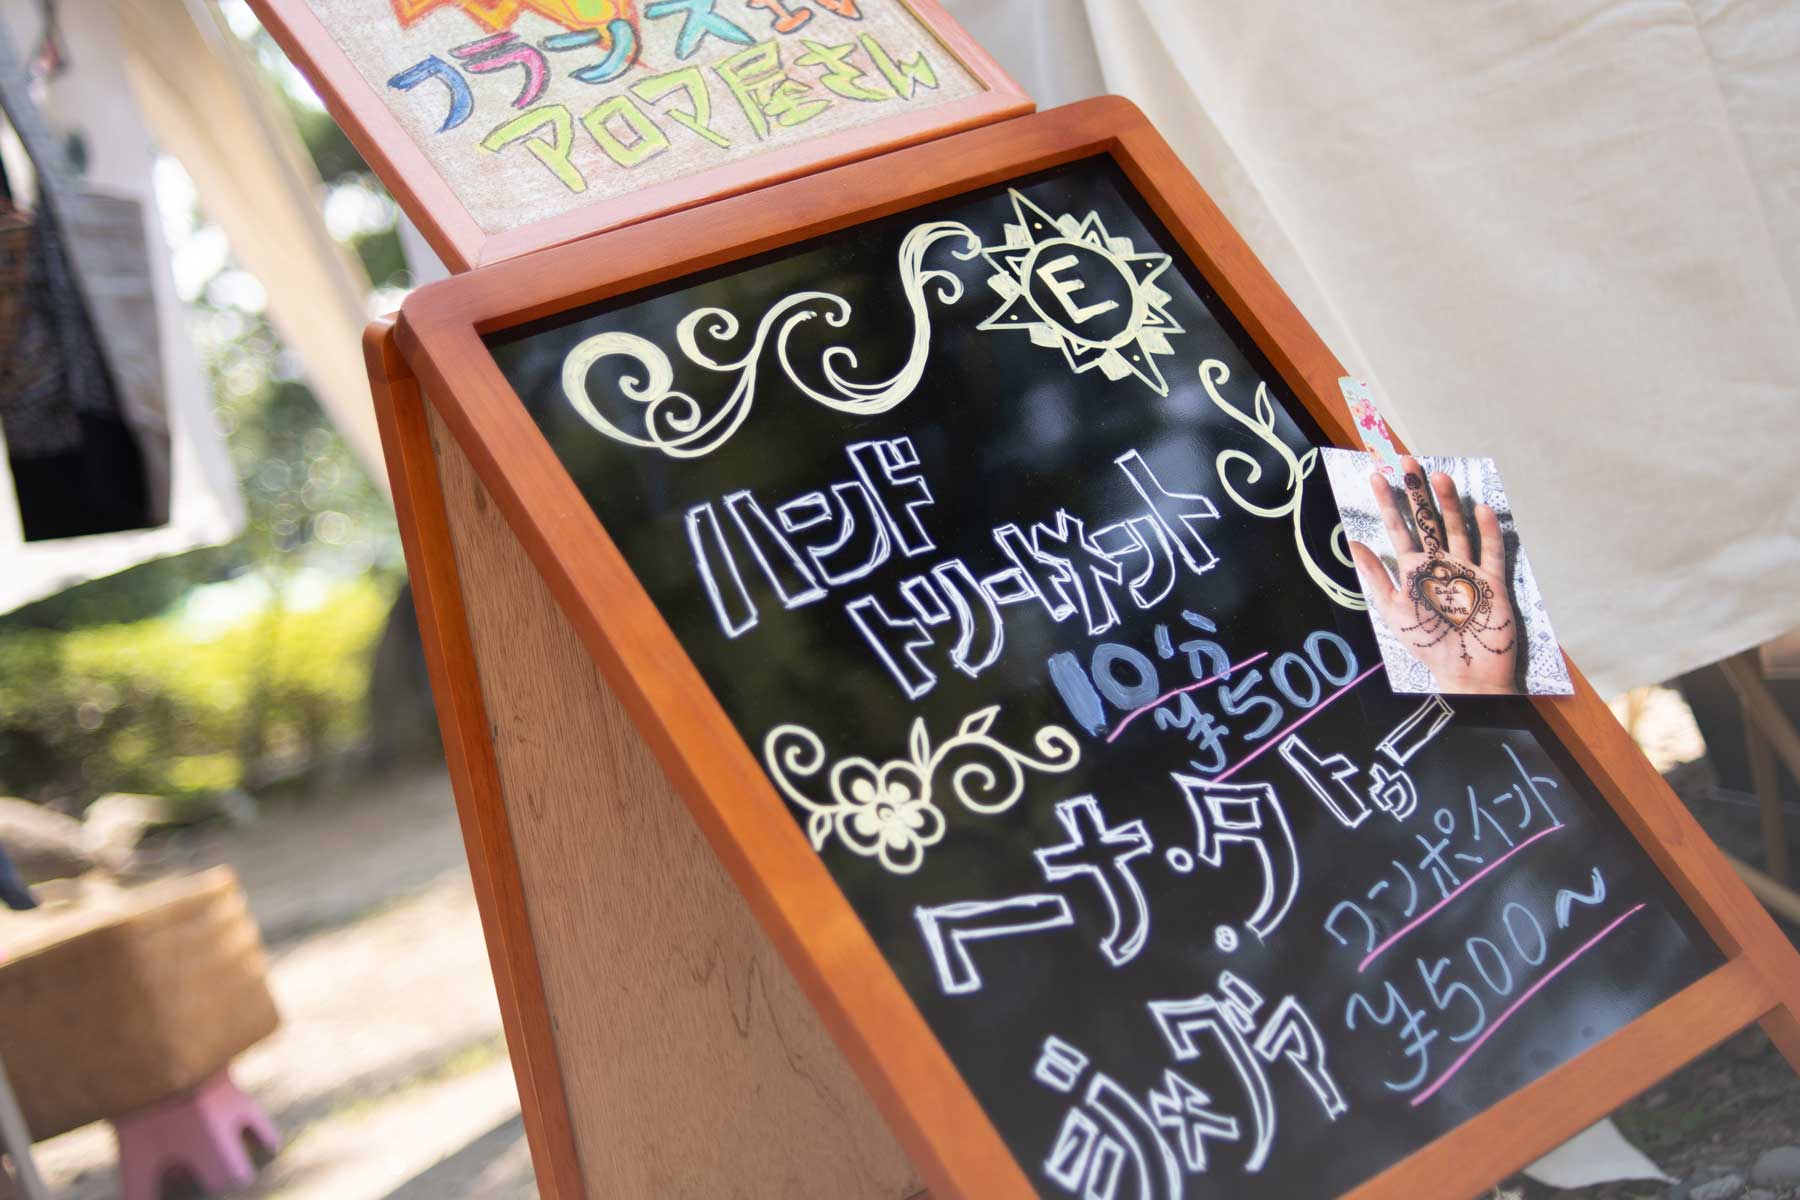 フランス式
アロマ屋さん
E
ハンド
トリートメント
10分
¥500
ヘナ・タトゥー
ワンポイント
¥500～
ジャグア
Smile
4
U&ME